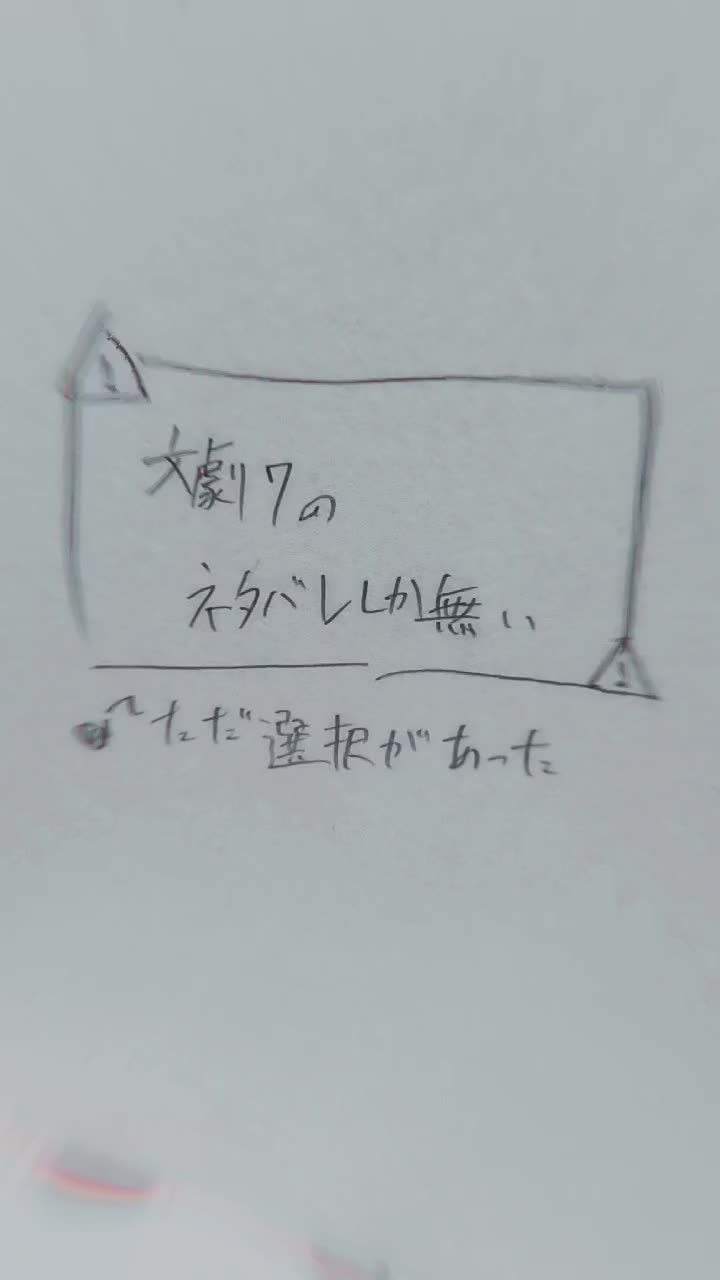 文劇7の
ネタバレしか無い
ただ選択があった